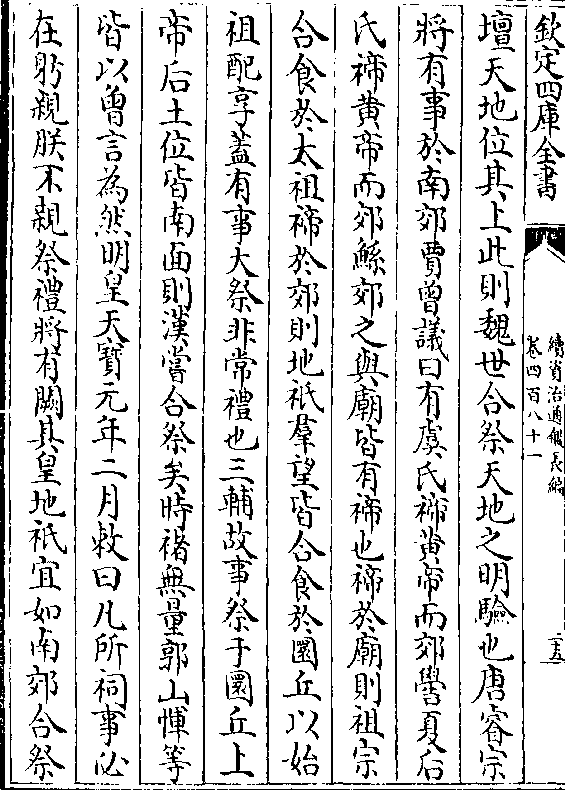 欽定四庫全書
續資治通鑑長編
卷四百八十一
十五
壇天地位其上此則魏世合祭天地之明驗也唐睿宗
將有事於南郊賈曾議曰有虞氏禘黄帝而郊嚳夏后
氏禘黄帝而郊鯀郊之與廟皆有禘也禘於廟則祖宗
合食於太祖禘於郊則地祇羣望皆合食於圜丘以始
祖配享蓋有事大祭非常禮也三輔故事祭于圜丘上
帝后土位皆南面則漢嘗合祭矣時褚無量郭山惲等
皆以曾言為然明皇天寳元年二月敕曰凡所祠事必
在躬親朕不親祭禮將有闕其皇地祇宜如南郊合祭